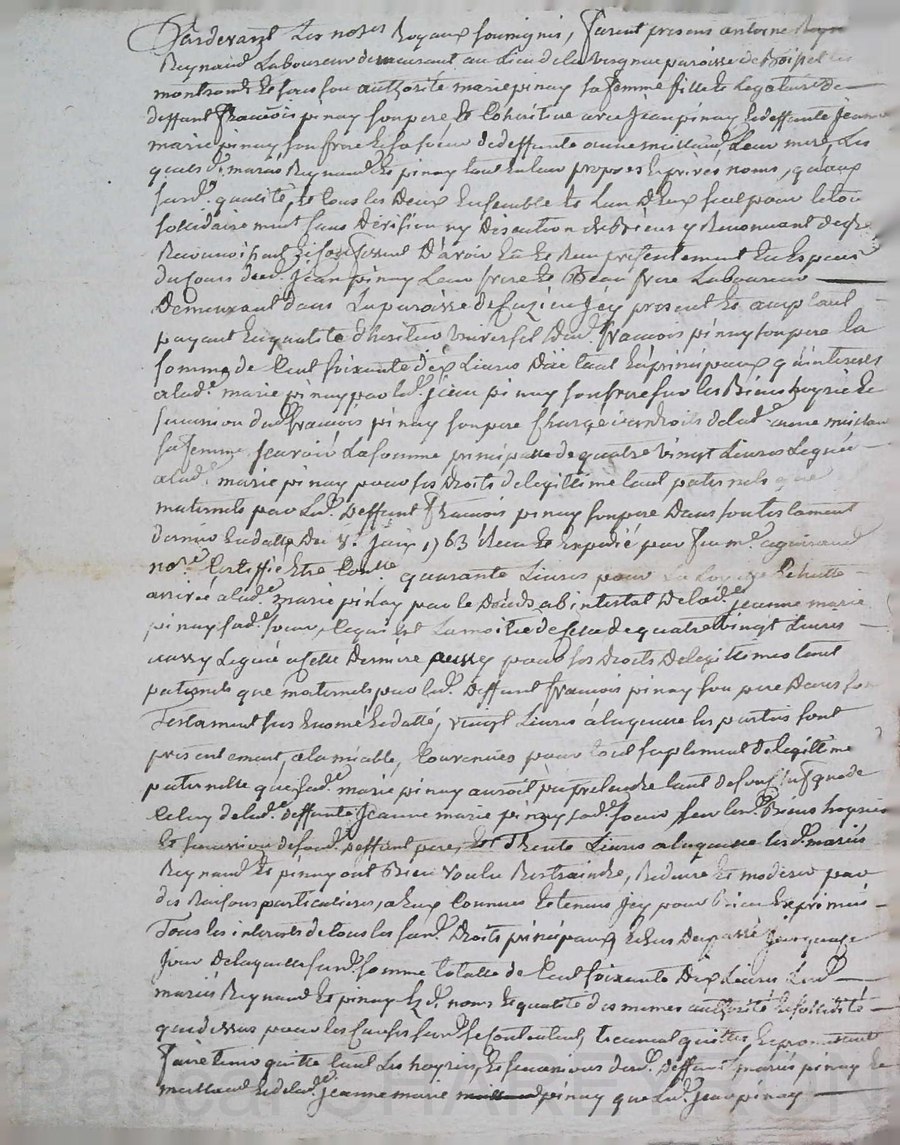 Pardevant Les nores Royaux soussignés, furent presens antoine
Reynaud Laboureur demeurant au Lieu de la vergnue paroisse de Boisset les
montrond Et sous son authorité marie pinay sa femme fille Et Legataire de
deffunt François pinay son pere, Et Cohéritiere avec Jean pinay Et deffunte Jeanne
marie pinay son frere Et sa soeur de deffunte anne mailland Leur mere, Les
quels d. mariés Reynaud Et pinay tant En Leur propres Et privés noms, qu'aux
susd. qualité, Et tous Les Deux Ensemble Et L'un D'Eux seul pour Le tou
solidairement sans Division ny Discution de Biens y Renonçant de gré
Reconnoissent Et Confessent D'avoir Eu Et Reçu présentement En Especes
du Cours de Jean pinay Leur frere Et Beau frere Laboureur
Demeurant dans La paroisse de Cuzieu jcy present Et acceptant
payant En qualité d'heritier universel dud. François pinay son pere La
somme de Cent soixante dix Livres Düe tant En principaux qu'interests
a Lad. marie pinay par Led. Jean pinay son frere sur Les Biens hoyrie Et
succession dud. François pinay son pere Chargé des droits de Lad. anne mailland
sa femme, sçavoir La somme principalle de quatre vingt Livres Leguée
a Lad. marie pinay pour ses Droits de legittime tant paternels que
maternels par Led. Deffunt François pinay son pere Dans son testament
dernier En datte Du 8. juin 1763 Receu Et Expedié par feu me. aguiraud
nore. Certiffié Etre Controllé quarante Livres pour La Portion Echutte
arrivée a Lad. marie pinay par Le Décéds ab intestat De Lad. Jeanne marie
pinay sad. soeur, Laquelle Est La moitié de Celle de quatre vingt Livres
aussy Leguée a Cette Derniere pour ses Droits De legittimes tant
paternels que maternels par Led. Deffunt François pinay son pere Dans son
Testament sus Enoncé Et datté, vingt Livres a Laquelle Les parties sont
présentement, a L'amiable, Convenües pour tout suplement de legittime
paternelle que Lad. marie pinay auroit pu prétendre tant de son chef que de
Celuy de Lad. deffunte Jeanne marie pinay sad. soeur sur Les d. Biens hoyries
Et succession de sond. deffunt pere, Et Trente Livres a Laquelle Les d. mariés
Reynaud Et pinay ont Bien voulu Restraindre, Reduire Et moderer pour
des Raisons particulieres, a Eux Connues Et tenues jcy pour Bien Exprimées
Tous Les interests de tous Les susd. Droits principaux Echus Du passé jusqu'a ce
jour De Laquelle susd. somme totalle de Cent soixante Dix Livres Lesd.
mariés Reynaud Et pinay Esd. noms Et qualité des mêmes authorité Et solidité
que dessus pour Les Causes susd. se Contentent, tiennent quittes, Et promettent
faire tenir quitte tant Les hoyries, Et successions desd. Deffunt mariés pinay Et
mailland Et de Lad. Jeanne marie pinay que Led. Jean pinay
Pascal CHAREYRON